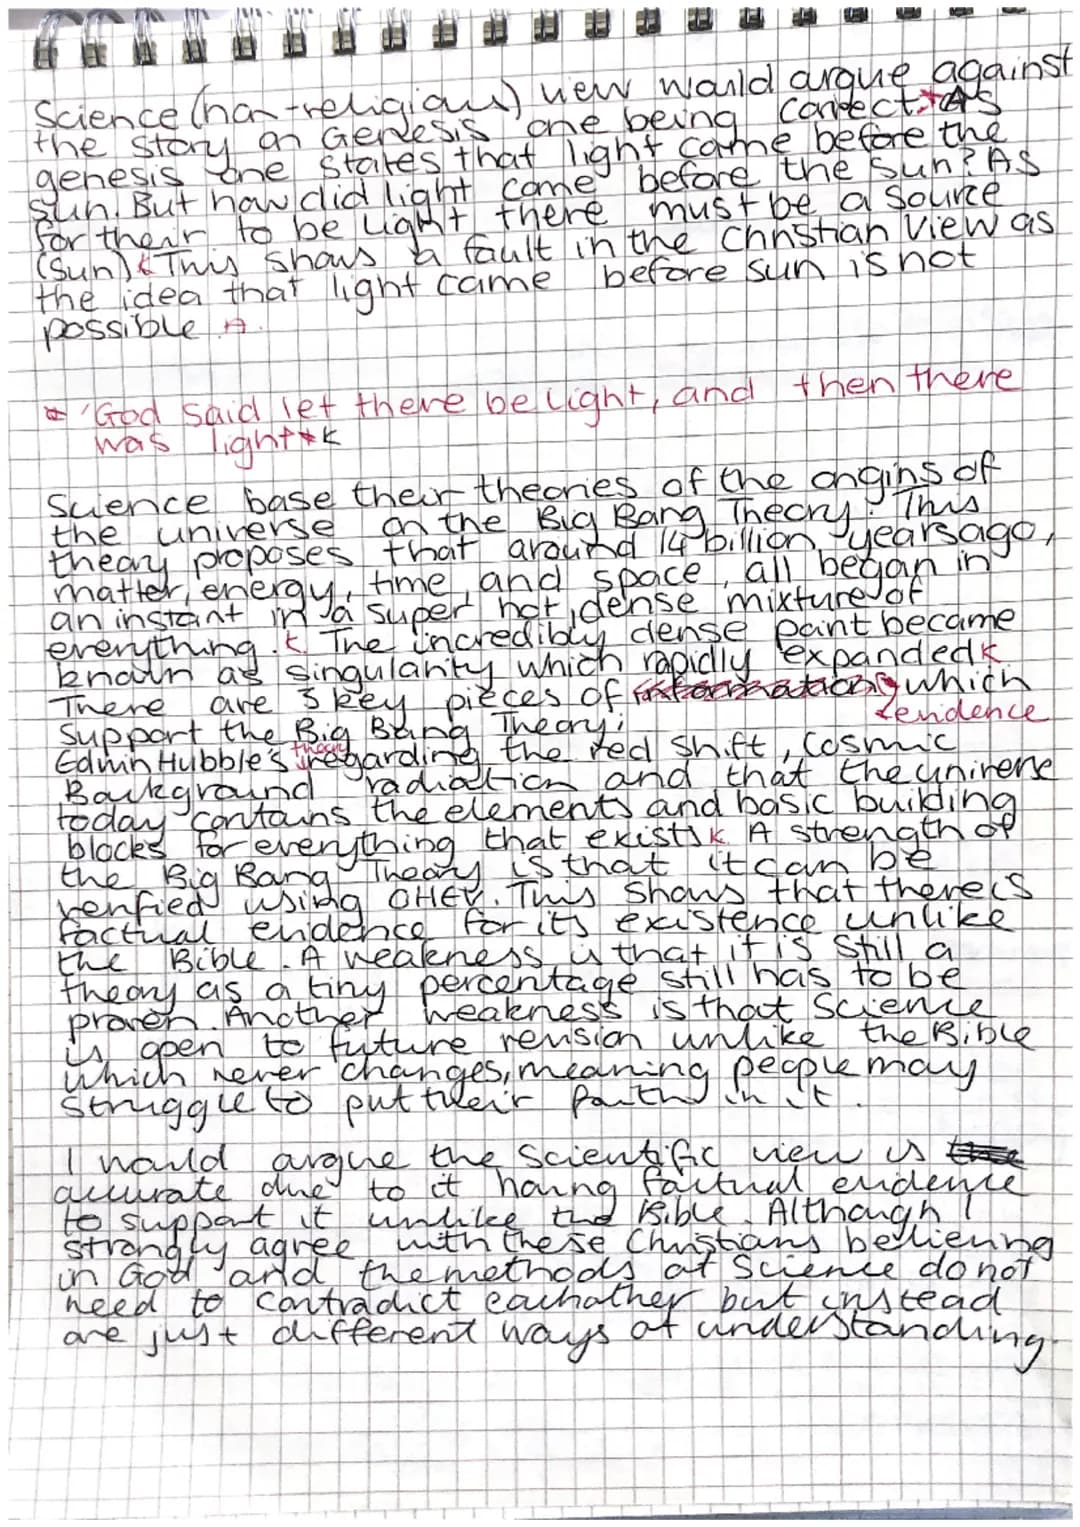 Science (non-religious) view would argue against
the story on Genesis one being correct.* As
genesis one states that light came before the
sun. But how did light come before the sun? As
for their to be light there must be a source
(sun) k This shows a fault in the Christian view as
the idea that light came before sun is not
possible A.
* 'God said let there be light, and then there
was light * k
Science base their theories of the origins of
the universe on the Big Bang Theory. This
theory proposes that around 14 billion years ago,
matter, energy, time, and space, all began in
an instant in a super hot, dense mixture of
everything. k The incredibly dense point became
known as singularity which rapidly expanded k
There are 3 key pieces of information which
evidence
support the Big Bang Theory;
Edwin Hubble's theory regarding the red shift, Cosmic
Background radiation and that the universe
today contains the elements and basic building
blocks for everything that exists k A strength of
the Big Bang Theory is that it can be
verified using OHEV. This shows that there is
factual evidence for its existence unlike
the Bible. A weakness is that it is still a
theory as a tiny percentage still has to be
proven. Another weakness is that Science
is open to future revision unlike the Bible
which never changes, meaning people may
struggle to put their faith in it.
I would argue the scientific view is
accurate due to it having factual evidence
to support it unlike the Bible. Although I
strongly agree with these Christians believing
in God and the methods of Science do not
need to contradict eachother but instead
are just different ways of understanding.